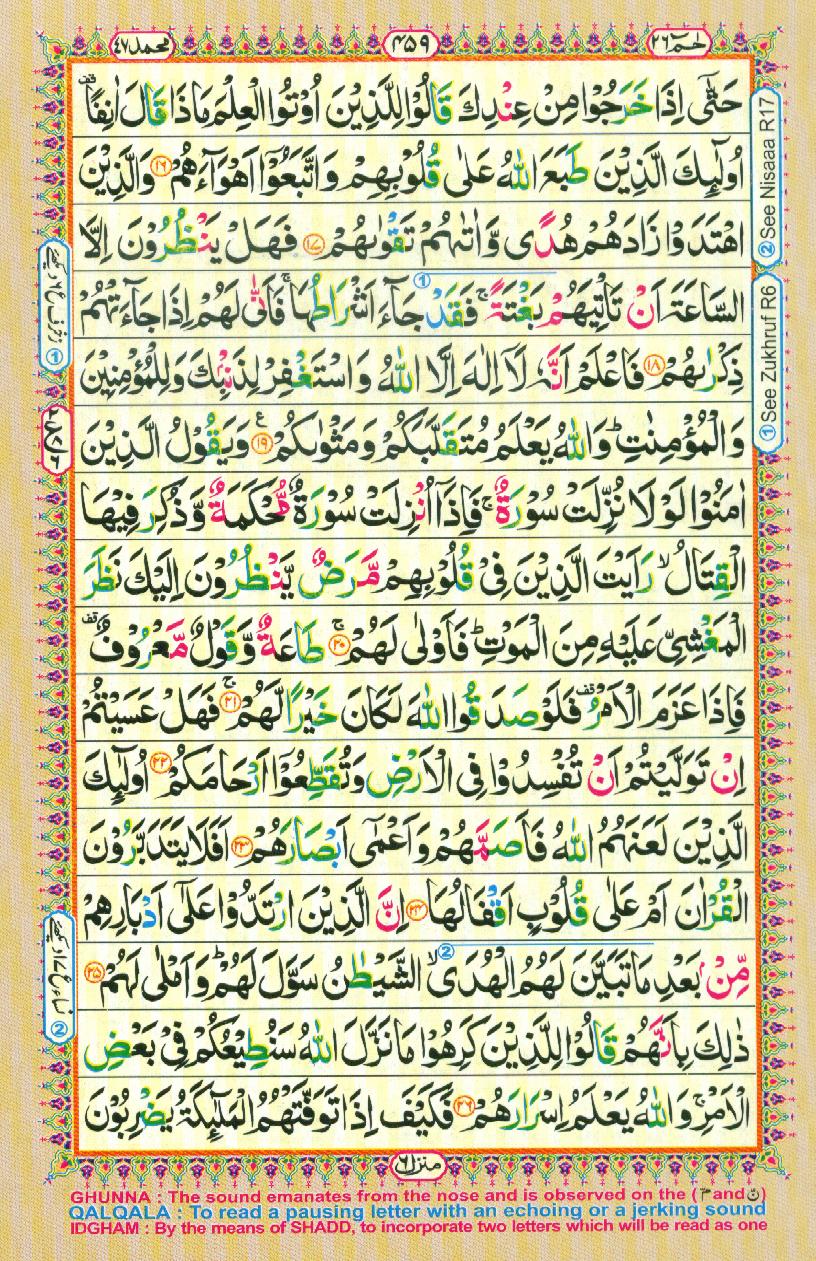 حٰمٓ ٢٦
٤٥٩
محمد ٤٧
حَتّٰۤى اِذَا خَرَجُوْا مِنْ عِنْدِكَ قَالُوْا لِلَّذِيْنَ اُوْتُوا الْعِلْمَ مَاذَا قَالَ اٰنِفًا ۫
اُولٰٓئِكَ الَّذِيْنَ طَبَعَ اللّٰهُ عَلٰى قُلُوْبِهِمْ وَاتَّبَعُوْۤا اَهْوَآءَهُمْ ﴿۱۶﴾ وَالَّذِيْنَ
اهْتَدَوْا زَادَهُمْ هُدًى وَّاٰتٰىهُمْ تَقْوٰىهُمْ ﴿۱۷﴾ فَهَلْ يَنْظُرُوْنَ اِلَّا
السَّاعَةَ اَنْ تَاْتِيَهُمْ بَغْتَةً ۚ فَقَدْ جَآءَ اَشْرَاطُهَا ۚ فَاَنّٰى لَهُمْ اِذَا جَآءَتْهُمْ
ذِكْرٰىهُمْ ﴿۱۸﴾ فَاعْلَمْ اَنَّهٗ لَاۤ اِلٰهَ اِلَّا اللّٰهُ وَاسْتَغْفِرْ لِذَنْۢبِكَ وَلِلْمُؤْمِنِيْنَ
وَالْمُؤْمِنٰتِ ؕ وَاللّٰهُ يَعْلَمُ مُتَقَلَّبَكُمْ وَمَثْوٰىكُمْ ﴿۱۹﴾ وَيَقُوْلُ الَّذِيْنَ
اٰمَنُوْا لَوْلَا نُزِّلَتْ سُوْرَةٌ ۚ فَاِذَاۤ اُنْزِلَتْ سُوْرَةٌ مُّحْكَمَةٌ وَّذُكِرَ فِيْهَا
الْقِتَالُ ۙ رَاَيْتَ الَّذِيْنَ فِيْ قُلُوْبِهِمْ مَّرَضٌ يَّنْظُرُوْنَ اِلَيْكَ نَظَرَ
الْمَغْشِيِّ عَلَيْهِ مِنَ الْمَوْتِ ؕ فَاَوْلٰى لَهُمْ ﴿۲۰﴾ ۚ طَاعَةٌ وَّقَوْلٌ مَّعْرُوْفٌ ۫
فَاِذَا عَزَمَ الْاَمْرُ ۫ فَلَوْ صَدَقُوا اللّٰهَ لَكَانَ خَيْرًا لَّهُمْ ﴿۲۱﴾ ۚ فَهَلْ عَسَيْتُمْ
اِنْ تَوَلَّيْتُمْ اَنْ تُفْسِدُوْا فِي الْاَرْضِ وَتُقَطِّعُوْۤا اَرْحَامَكُمْ ﴿۲۲﴾ اُولٰٓئِكَ
الَّذِيْنَ لَعَنَهُمُ اللّٰهُ فَاَصَمَّهُمْ وَاَعْمٰۤى اَبْصَارَهُمْ ﴿۲۳﴾ اَفَلَا يَتَدَبَّرُوْنَ
الْقُرْاٰنَ اَمْ عَلٰى قُلُوْبٍ اَقْفَالُهَا ﴿۲۴﴾ اِنَّ الَّذِيْنَ ارْتَدُّوْا عَلٰۤى اَدْبَارِهِمْ
مِّنْۢ بَعْدِ مَا تَبَيَّنَ لَهُمُ الْهُدَى ۙ الشَّيْطٰنُ سَوَّلَ لَهُمْ ؕ وَاَمْلٰى لَهُمْ ﴿۲۵﴾
ذٰلِكَ بِاَنَّهُمْ قَالُوْا لِلَّذِيْنَ كَرِهُوْا مَا نَزَّلَ اللّٰهُ سَنُطِيْعُكُمْ فِيْ بَعْضِ
الْاَمْرِ ۚ وَاللّٰهُ يَعْلَمُ اِسْرَارَهُمْ ﴿۲۶﴾ فَكَيْفَ اِذَا تَوَفَّتْهُمُ الْمَلٰٓئِكَةُ يَضْرِبُوْنَ
② See Nisaaa R17
① See Zukhruf R6
منزل ٦
GHUNNA : The sound emanates from the nose and is observed on the ( مّ and نّ )
QALQALA : To read a pausing letter with an echoing or a jerking sound
IDGHAM : By the means of SHADD, to incorporate two letters which will be read as one